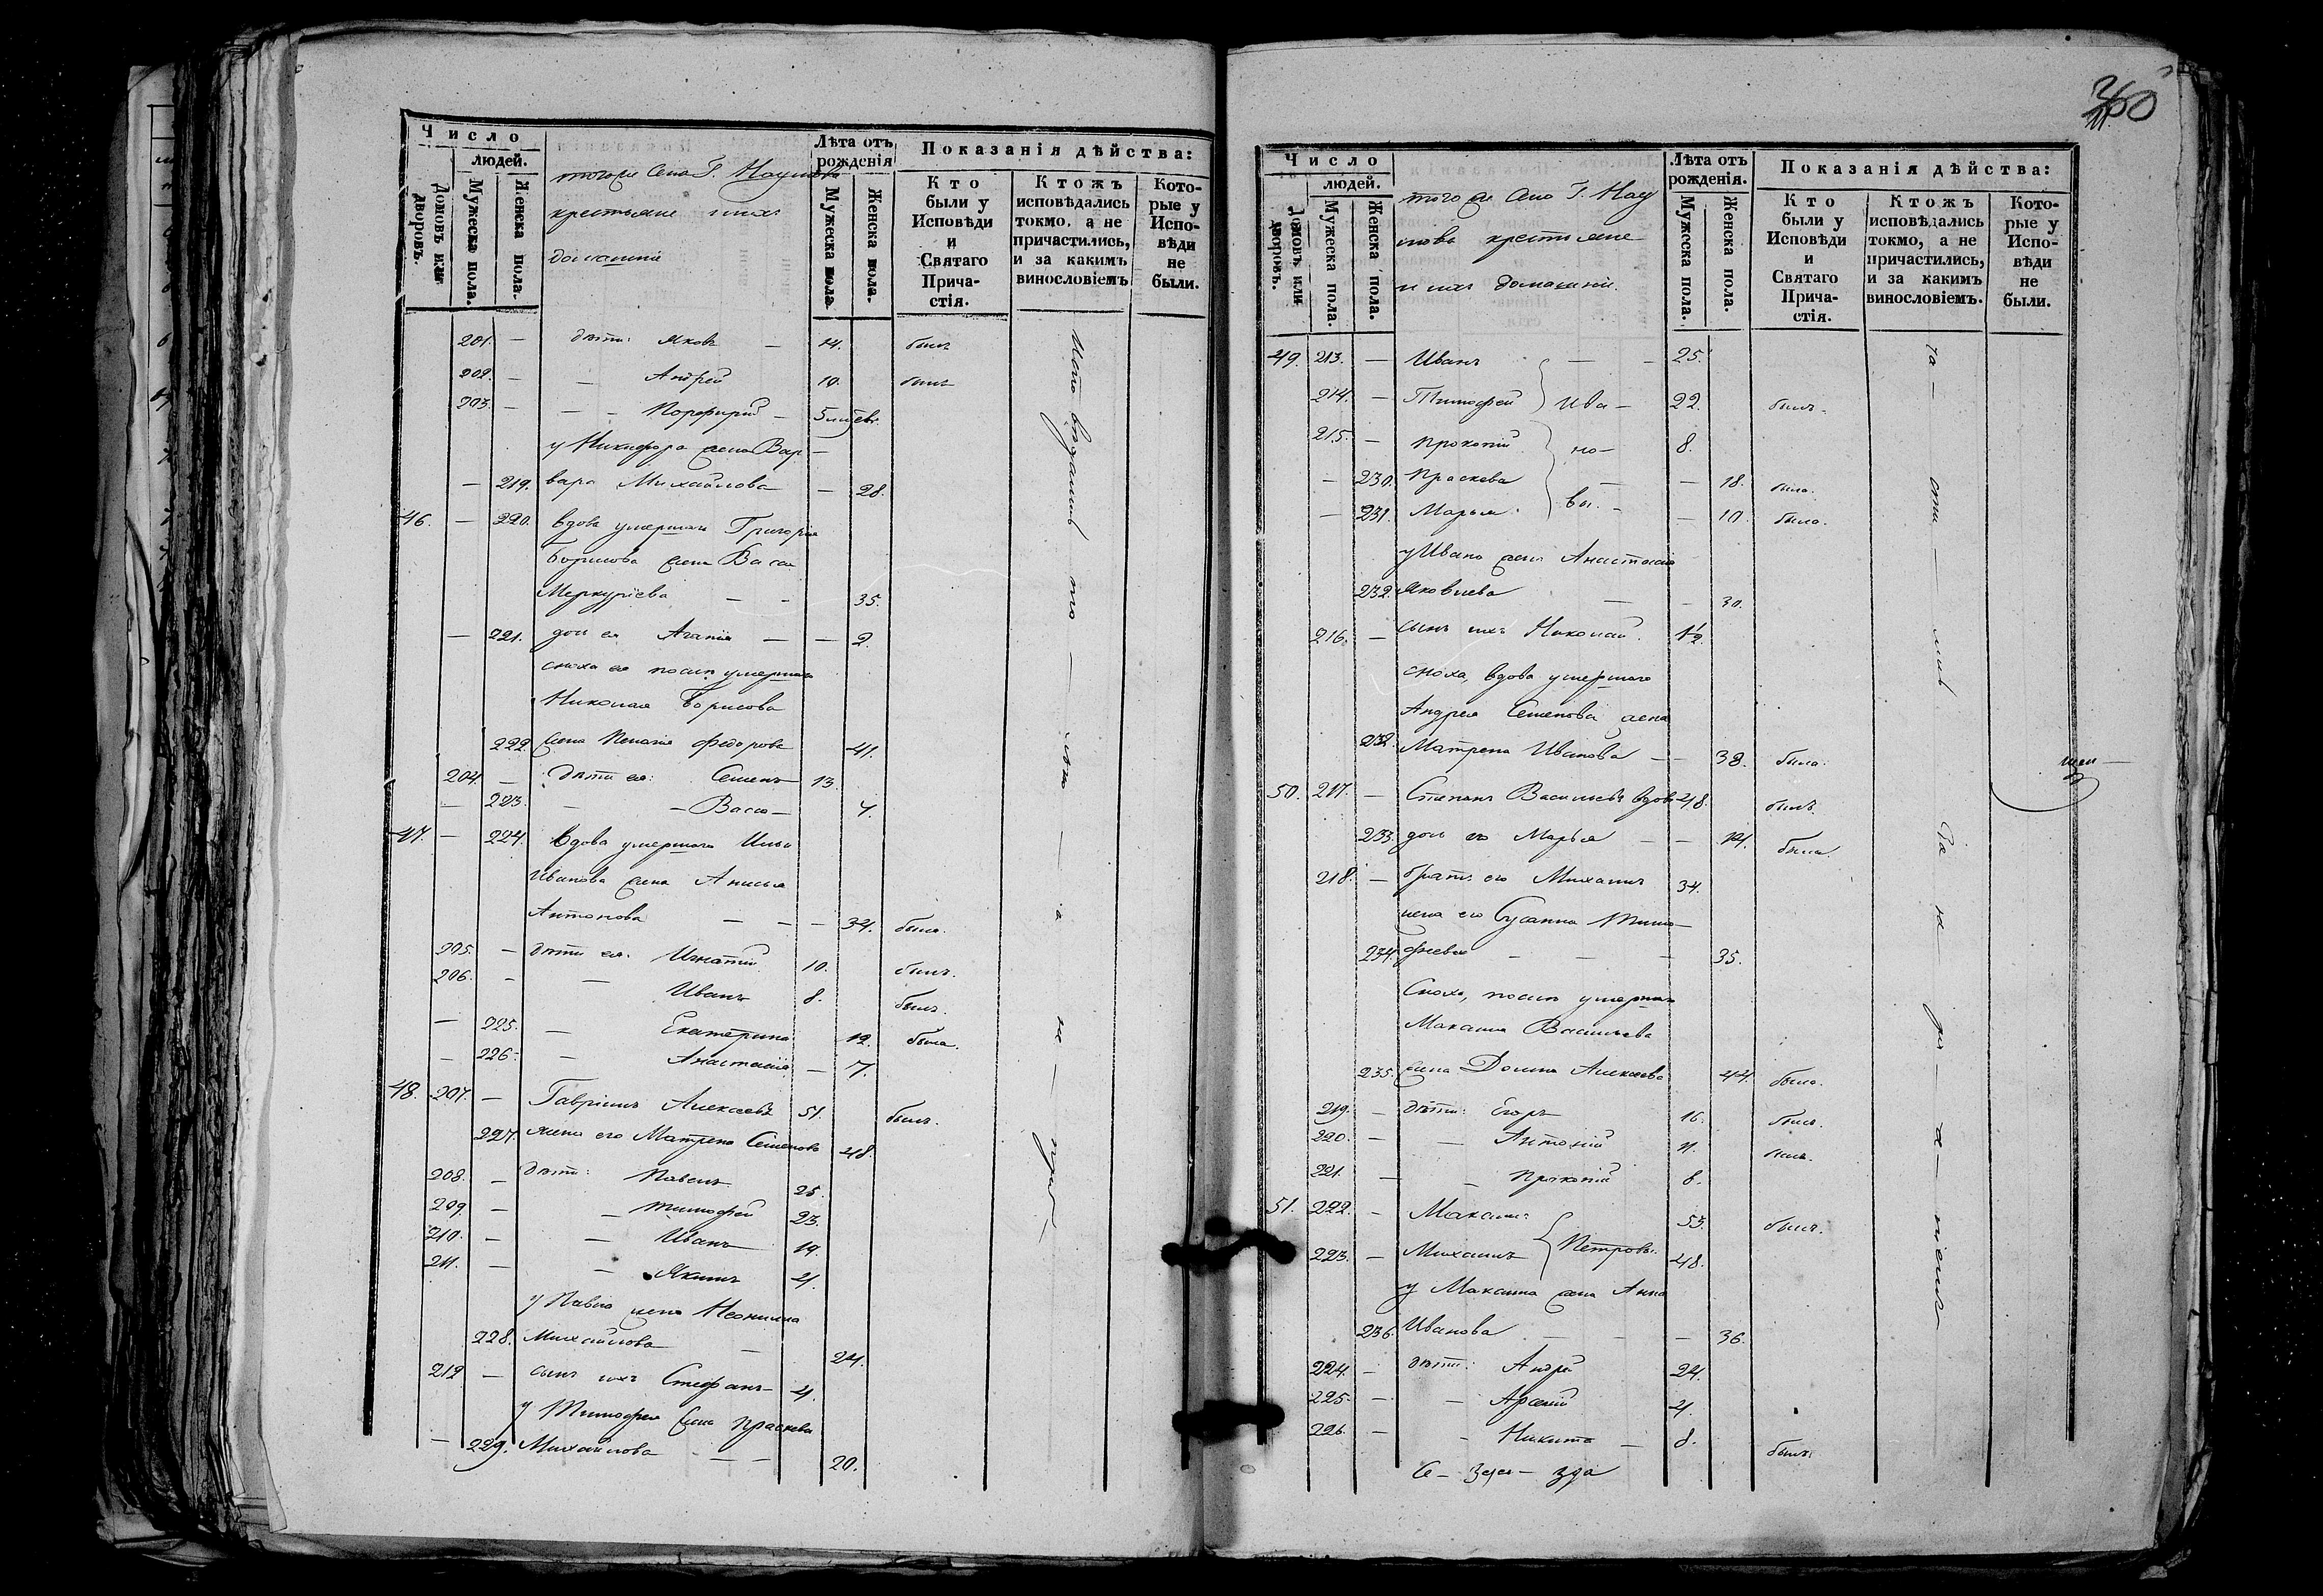 Число
людей.
Домовъ или дворовъ.
Мужеска пола.
Женска пола.
тогоже села Г. Наумова
крестьяне и ихъ
домашніе
Лѣта отъ рожденія
Мужеска пола
Женска пола.
Показанія дѣйства:
Кто были у Исповѣди и Святаго Причастія.
Ктожъ исповѣдались токмо, а не причастились, и за какимъ винословіемъ
Которые у Исповѣди не были.
201. — дѣти: Яковъ — 14. былъ
202. — — Андрей 10. былъ
203. — — Порфирій — 5
у Никифора жена Вар
— 219. вара Михайлова — 28.
46. — 220. вдова умершаго Григорія
Борисова жена Васса
Меркуріева — — 35.
— 221. дочь ея Агапія — — 2.
сноха ея послѣ умершаго
Николая Борисова
222. жена Пелагія Федорова 41.
204 — дѣти ея: Семенъ 13.
— 223. — — Васса — 7.
47. — 224. Вдова умершаго Ильи
Иванова жена Анисья
Антонова — — — 34. была.
205. — дѣти ея: Игнатій 10. былъ.
206. — — Иванъ 8. былъ.
— 225. — Екатерина 12. была.
— 226. — Анастасія — 7.
48. 207. — Гавріилъ Алексѣевъ 51. былъ.
227. жена его Матрена Семенова 48.
208. — дѣти: Павелъ 25.
209. — — Тимофей 23.
210. — — Иванъ 19.
211. — — Якимъ 4.
у Павла жена Неонилла
228. Михайлова — 24.
212 — сынъ ихъ Стефанъ — 4.
у Тимофея жена Праскева
— 229. Михайлова — — 20.
Число
людей.
Домовъ или дворовъ.
Мужеска пола.
Женска пола.
того же села Г. Нау
мова крестьяне
и ихъ домашніе.
Лѣта отъ рожденія.
Мужеска пола.
Женска пола.
Показанія дѣйства:
Кто были у Исповѣди и Святаго Причастія.
Ктожъ исповѣдались токмо, а не причастились, и за какимъ винословіемъ.
Которые у Исповѣди не были.
49. 213. — Иванъ — — 25.
214. — Тимофей Ива — 22. былъ.
215. — Прокопій но — 8.
— 230. Праскева — — 18. была.
— 231. Марья. вы. — — 10. была.
у Ивана жена Анастасія
232. Яковлева — — 30.
216. — сынъ ихъ Николай. 1/2.
сноха, вдова умершаго
Андрея Семенова жена
232. Матрена Иванова — — 38. была.
50. 217. — Степанъ Васильевъ вдовъ 48. былъ.
233. дочь его Марья — — 14. была.
218. — братъ его Михаилъ 34.
жена его Сусанна Тимо-
234. феева — — — 35.
Сноха, послѣ умершаго
Максима Васильева
235. жена Домна Алексѣева 44. была.
219. — дѣти: Егоръ 16. былъ.
220. — — Антоній 11. былъ.
221. — — Прокопій 6.
51. 222. — Максимъ 53. былъ.
223. — Михаилъ Петровы. 48.
у Максима жена Анна
236. Иванова — — — 36.
224. — дѣти: Андрей 24.
225. — — Арсеній 4.
226. — — Никита — 8. былъ.